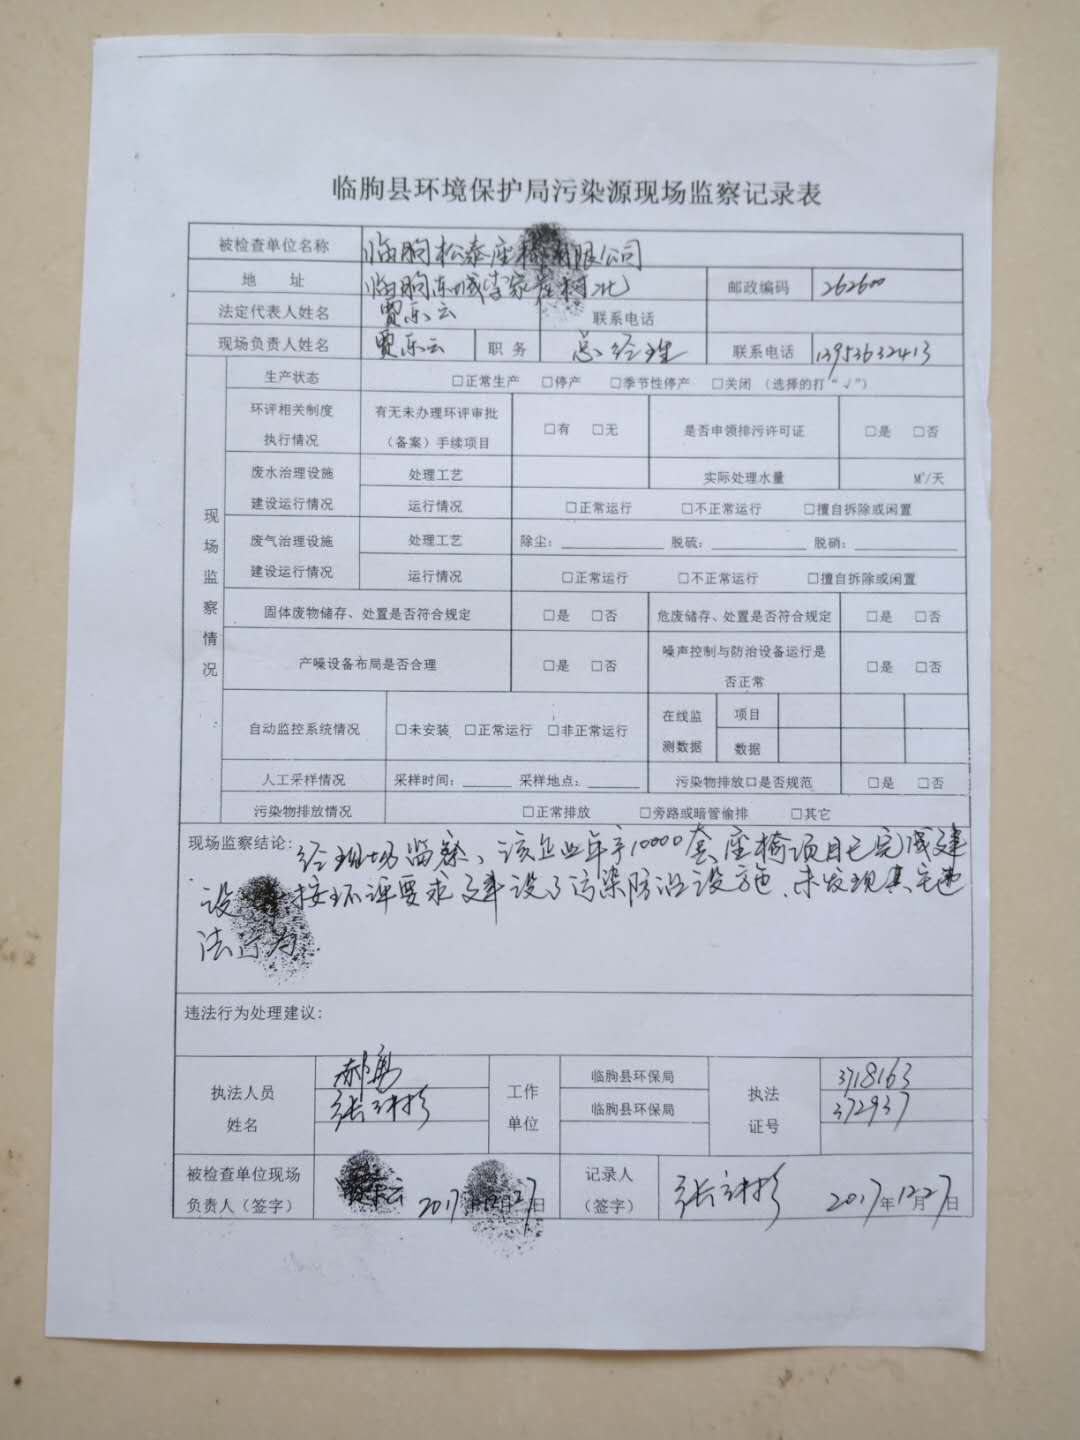 临朐县环境保护局污染源现场监察记录表
被检查单位名称 临朐松泰座椅有限公司
地 址 临朐东城李家崖村北 邮政编码 262600
法定代表人姓名 贾乐云 联系电话
现场负责人姓名 贾乐云 职 务 总经理 联系电话 13953632413
现场监察情况
生产状态 □正常生产 □停产 □季节性停产 □关闭 (选择的打“√”)
环评相关制度执行情况 有无未办理环评审批(备案)手续项目 □有 □无 是否申领排污许可证 □是 □否
废水治理设施建设运行情况 处理工艺 实际处理水量 M³/天
运行情况 □正常运行 □不正常运行 □擅自拆除或闲置
废气治理设施建设运行情况 处理工艺 除尘: 脱硫: 脱硝:
运行情况 □正常运行 □不正常运行 □擅自拆除或闲置
固体废物储存、处置是否符合规定 □是 □否 危废储存、处置是否符合规定 □是 □否
产噪设备布局是否合理 □是 □否 噪声控制与防治设备运行是否正常 □是 □否
自动监控系统情况 □未安装 □正常运行 □非正常运行 在线监测数据 项目
数据
人工采样情况 采样时间: 采样地点: 污染物排放口是否规范 □是 □否
污染物排放情况 □正常排放 □旁路或暗管偷排 □其它
现场监察结论: 经现场监察、该企业年产10000套座椅项目已完成建
设 按环评要求建设了污染防治设施、未发现其它违
法行为.
违法行为处理建议:
执法人员姓名 郝勇 工作单位 临朐县环保局 执法证号 3718163
张 临朐县环保局 372937
被检查单位现场负责人(签字) 贾乐云 2017年12月27日 记录人(签字) 张 2017年12月27日